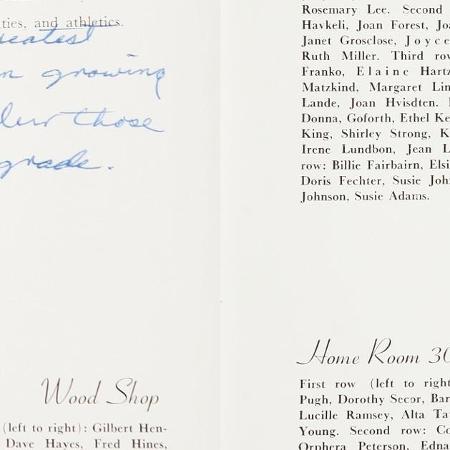 ties, and athletics.
growing
those
grade.
Wood Shop
(left to right): Gilbert Hen-
Dave Hayes, Fred Hines,
Rosemary Lee. Second
Havkeli, Joan Forest,
Janet Grosclose, Joyce
Ruth Miller. Third
Franko, Elaine
Matzkind, Margaret
Lande, Joan Hvisdten.
Donna, Goforth, Ethel
King, Shirley Strong,
Irene Lundbon, Jean
row: Billie Fairbairn,
Doris Fechter, Susie
Johnson, Susie Adams.
Home Room
First row (left to
Pugh, Dorothy Secor,
Lucille Ramsey, Alta
Young. Second row:
Orphera Peterson,